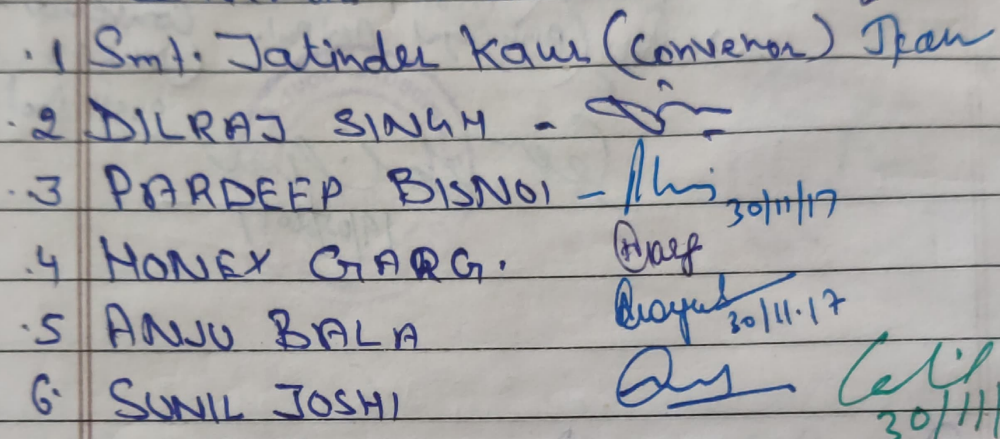 .1 Smt. Jatinder Kaur (Convenor) Jkaur
.2 DILRAJ SINGH -
.3 PARDEEP BISNOI - 30/11/17
.4 HONEY GARG.
.5 ANJU BALA 30/11.17
6. SUNIL JOSHI 30/11/